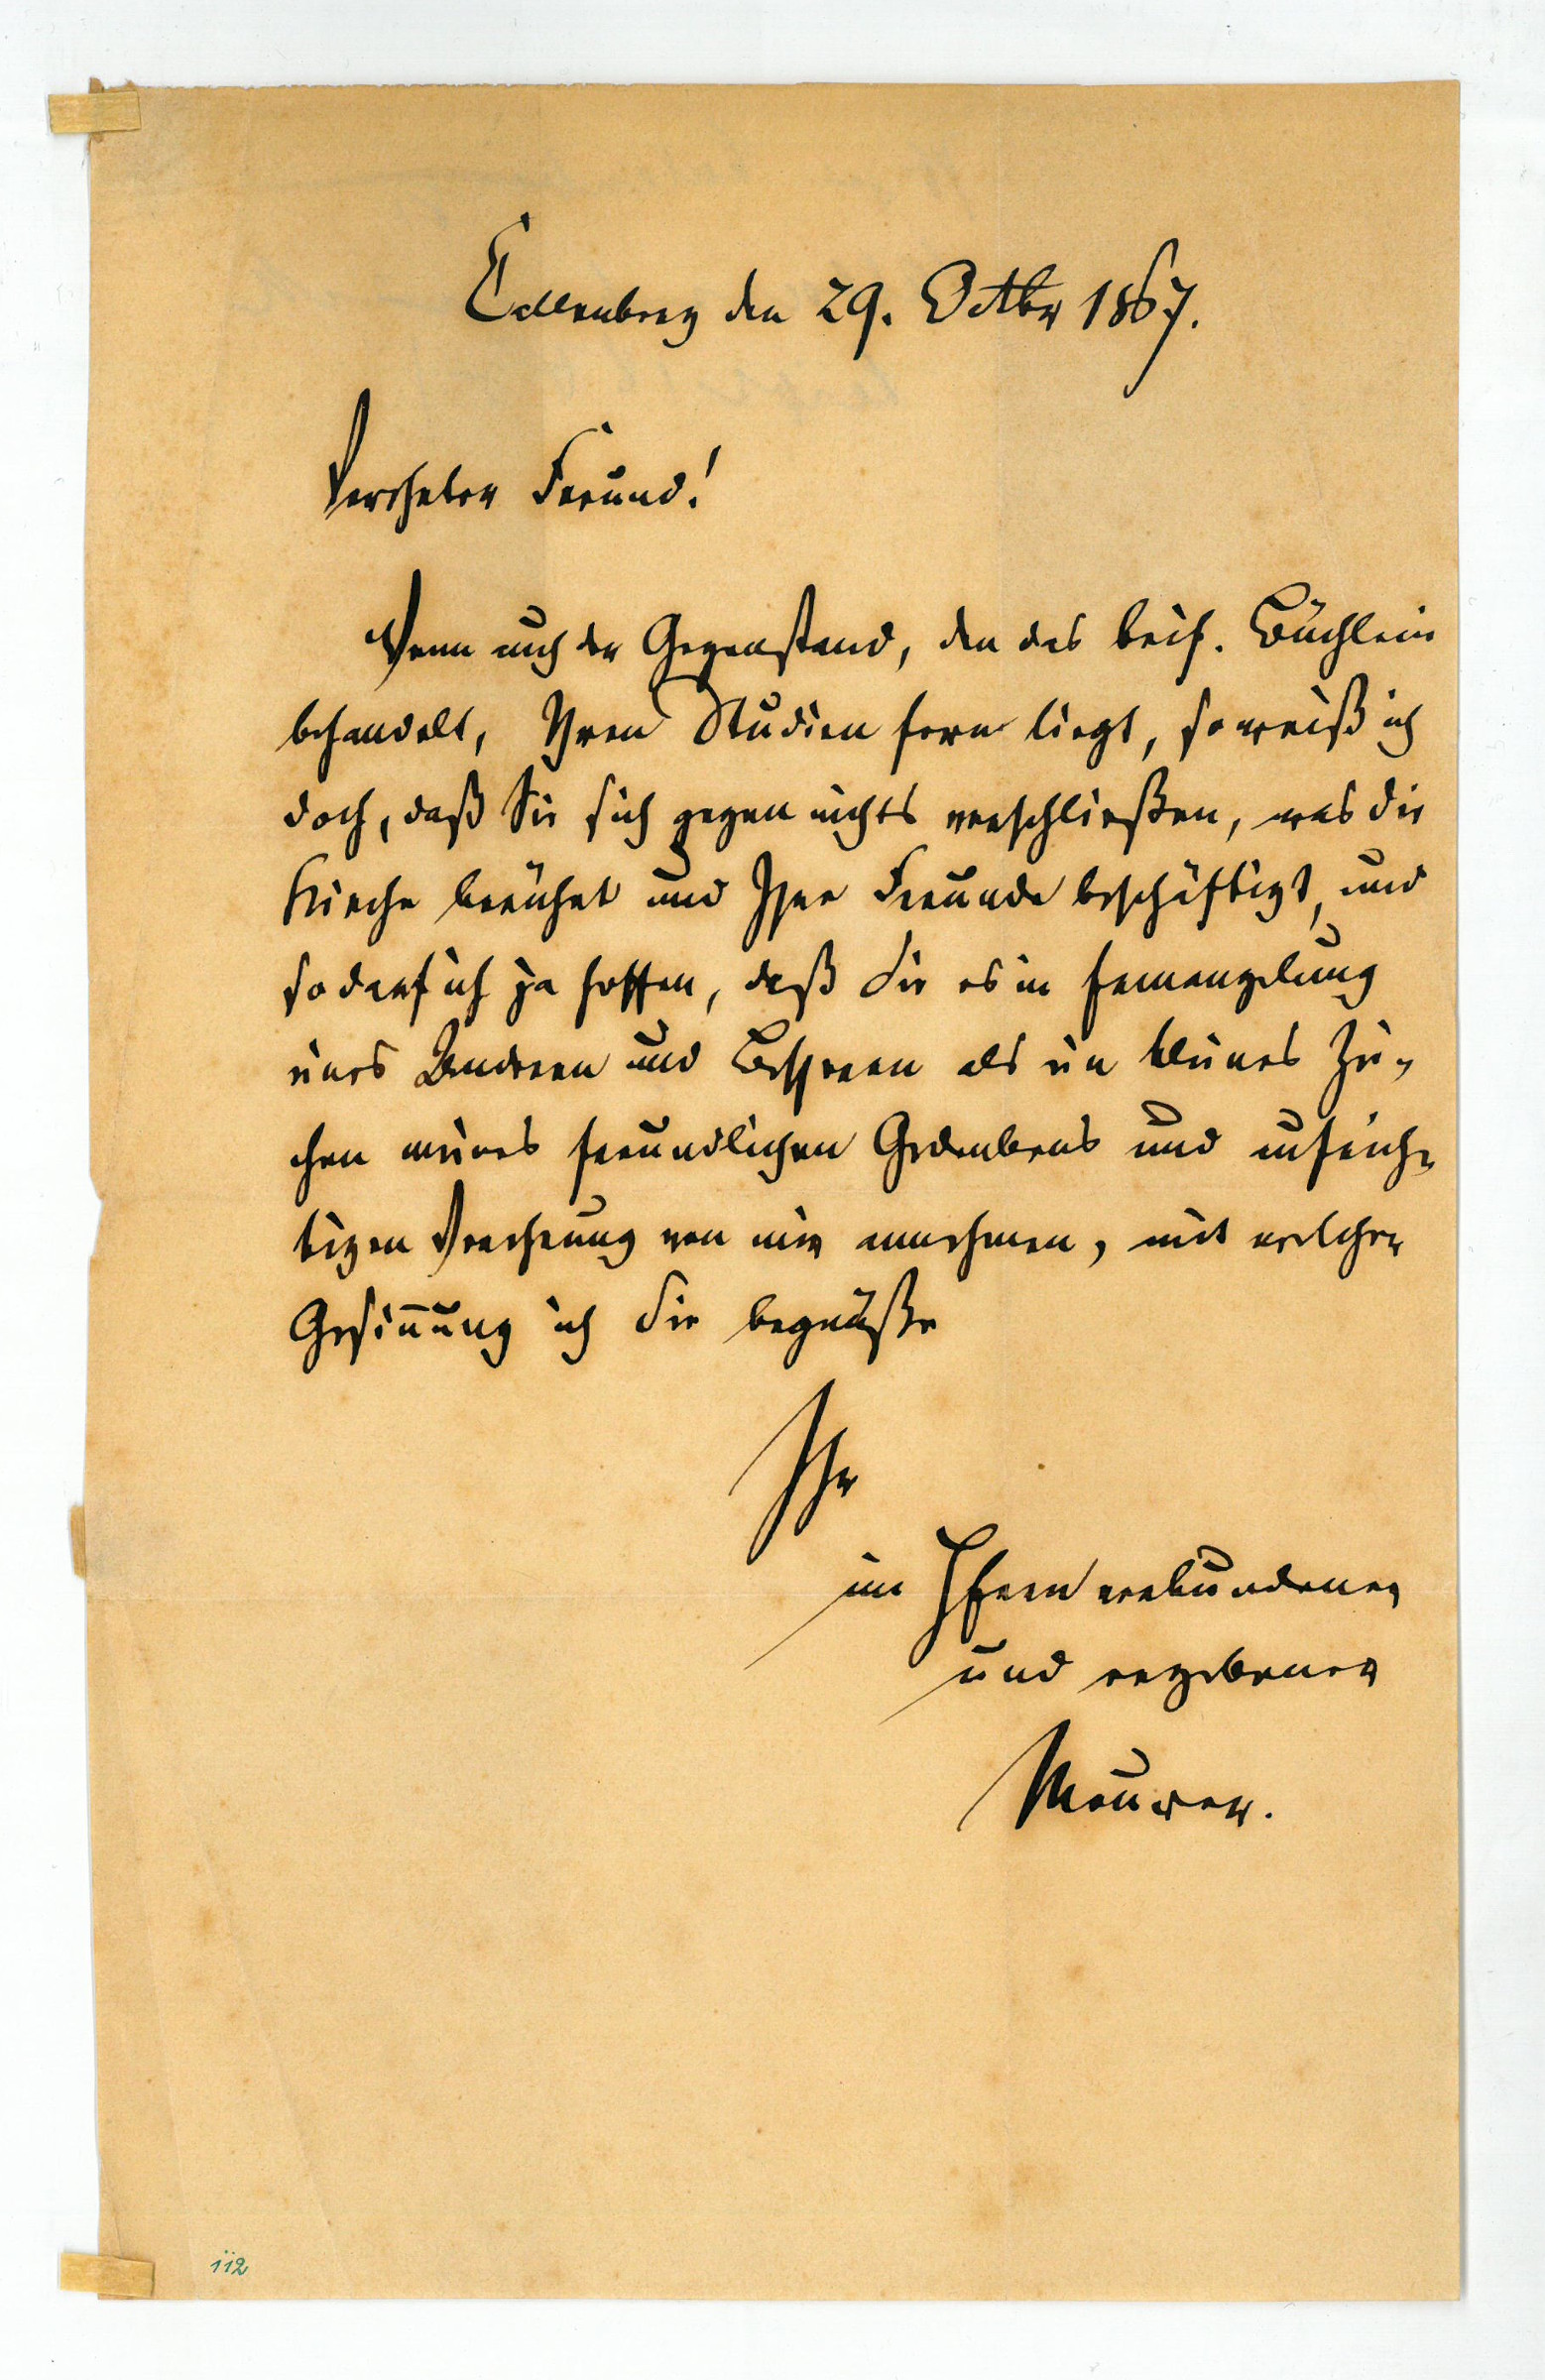 Callenberg den 29. Octbr 1867.
Verehrter Freund!
Wenn auch der Gegenstand, den das beif. Büchlein
behandelt, Ihren Studien fern liegt, so weiß ich
doch, daß Sie sich gegen nichts verschließen, was die
Kirche berührt und Ihre Freunde beschäftigt, und
so darf ich ja hoffen, daß Sie es in Ermangelung
eines Anderen und Besseren als ein kleines Zei-
chen meines freundlichen Gedenkens und aufrich-
tigen Verehrung von mir annehmen, mit welcher
Gesinnung ich Sie begrüße
Ihr
im HErrn verbundener
und ergebener
Meurer.
112